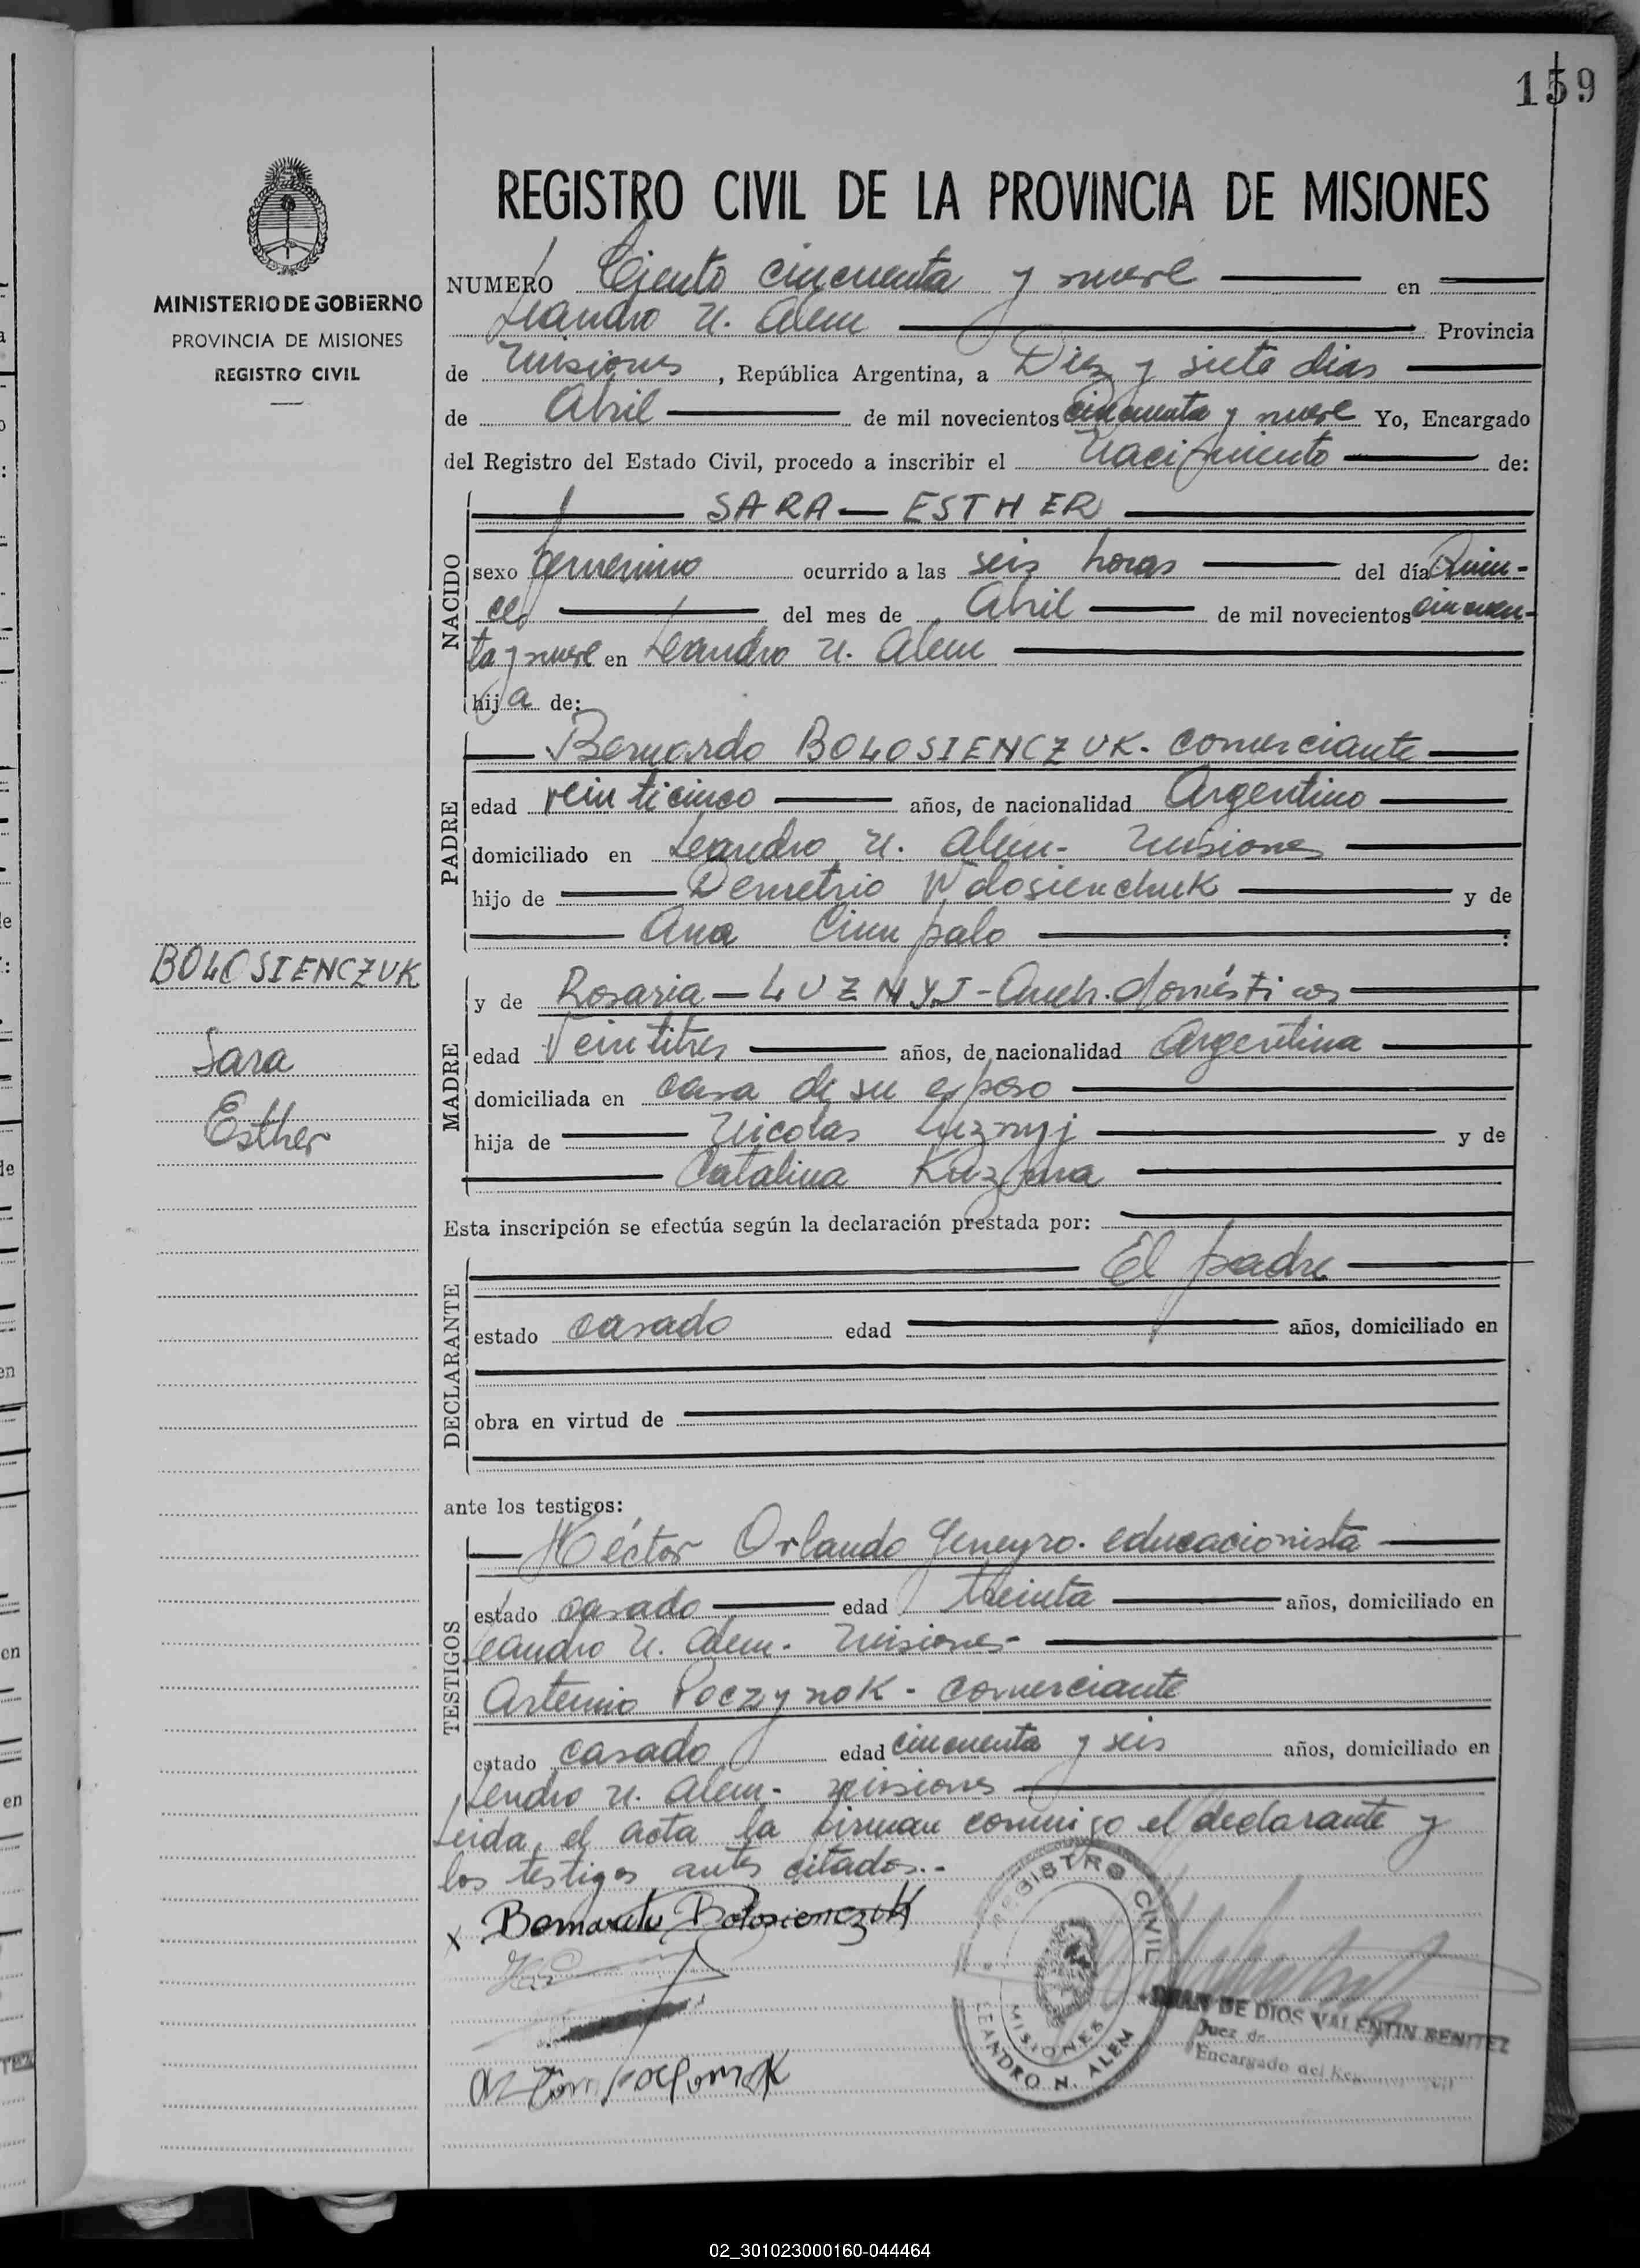 159
REGISTRO CIVIL DE LA PROVINCIA DE MISIONES
MINISTERIO DE GOBIERNO
PROVINCIA DE MISIONES
REGISTRO CIVIL
NUMERO Ciento cincuenta y nueve en
Leandro N. Alem Provincia
de Misiones, República Argentina, a Diez y siete dias
de Abril de mil novecientos cincuenta y nueve Yo, Encargado
del Registro del Estado Civil, procedo a inscribir el Nacimiento de:
NACIDO
SARA — ESTHER
sexo femenino ocurrido a las seis horas del día Quin-
ce del mes de Abril de mil novecientos cincuen-
ta y nueve en Leandro N. Alem
hija de:
PADRE
Bernardo BOLOSIENCZUK. comerciante
edad veinticinco años, de nacionalidad Argentino
domiciliado en Leandro N. Alem - Misiones
hijo de Demetrio Wolosienchuk y de
Ana Cimpalo
BOLOSIENCZUK
Sara
Esther
MADRE
y de Rosaria — LUZNYJ - Queh. domésticos
edad Veintitres años, de nacionalidad Argentina
domiciliada en casa de su esposo
hija de Nicolas Luznyj y de
Catalina Kuzma
Esta inscripción se efectúa según la declaración prestada por:
DECLARANTE
El padre
estado casado edad años, domiciliado en
obra en virtud de
ante los testigos:
TESTIGOS
Héctor Orlando Geneyro. educacionista
estado casado edad treinta años, domiciliado en
Leandro N. Alem. Misiones
Artemio Poczynok - comerciante
estado casado edad cincuenta y seis años, domiciliado en
Lendro N. Alem - Misiones
Leida, el acta la firman conmigo el declarante y
los testigos antes citados.-
x Bernardo Bolosienczuk
REGISTRO CIVIL
MISIONES
LEANDRO N. ALEM
JUAN DE DIOS VALENTIN BENITEZ
Juez de
Encargado del
02_301023000160-044464